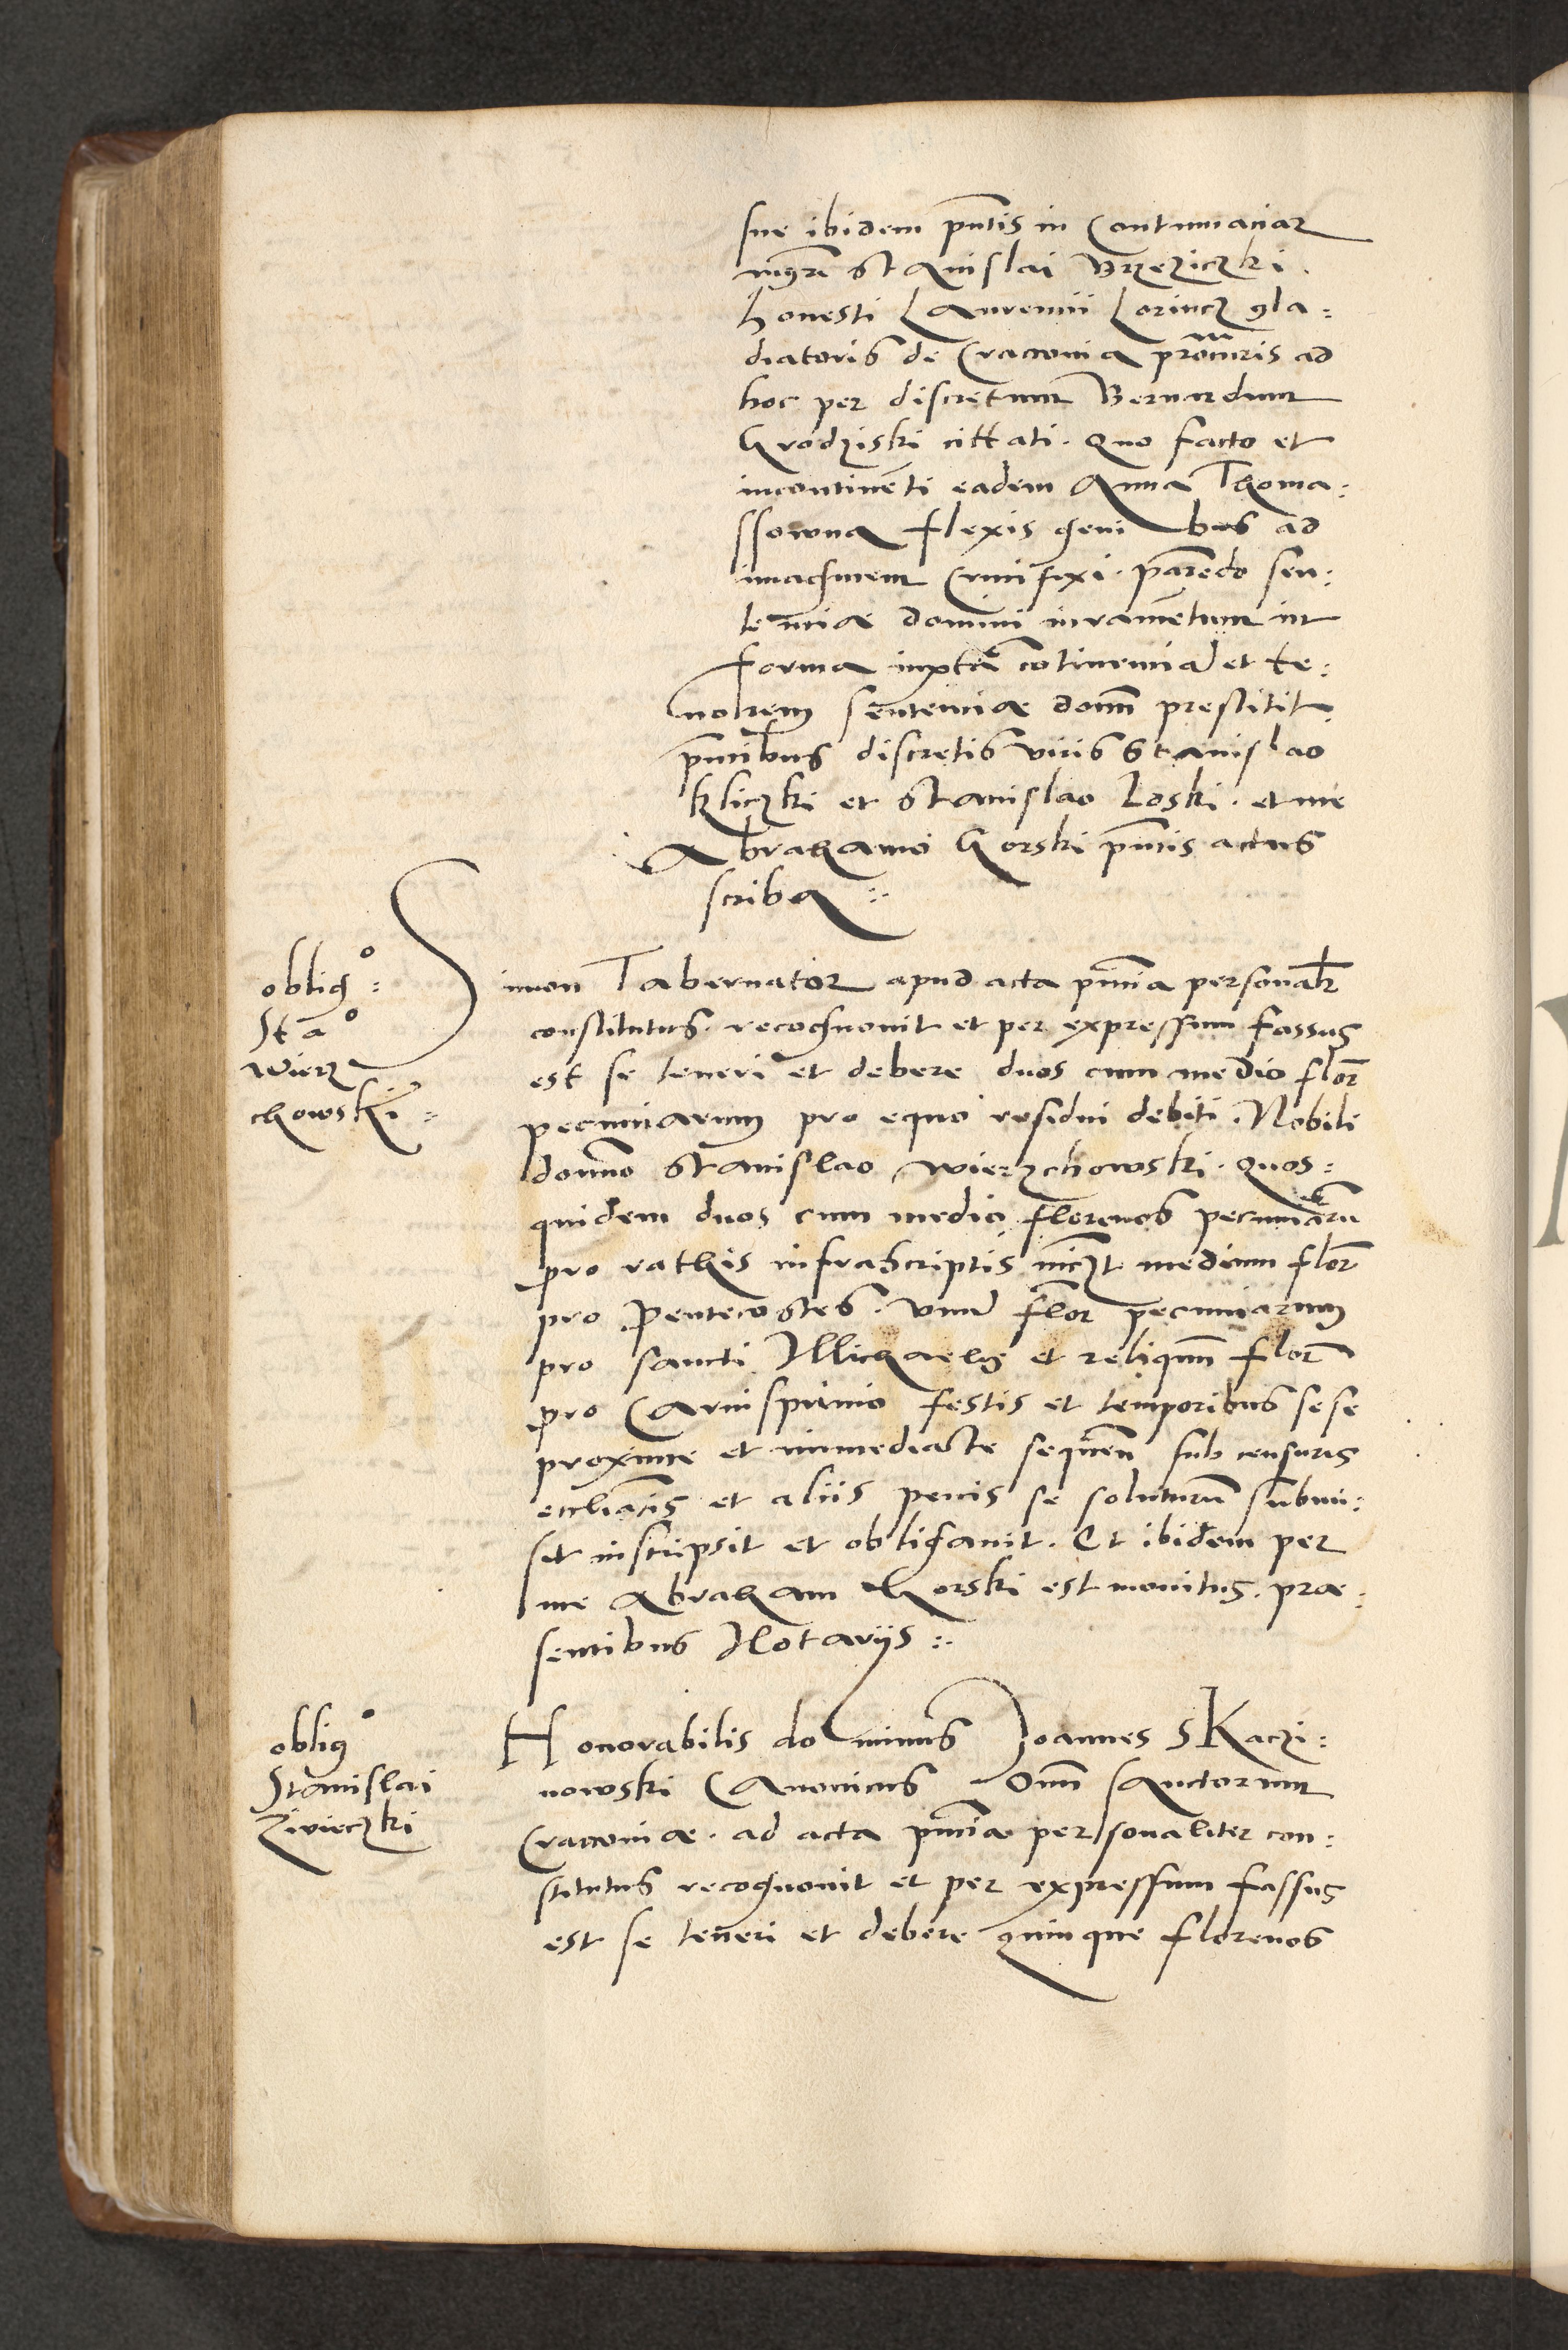 sue ibidem pntis in Contumaciam
mgri Stanislai Brzeziczki
honesti Laurencii Lorincz gla:
diatoris de Craccovia procuris ad
hoc per discretum Bernardum
Grodziski cittati. Quo facto et
incontinenti eadem Anna Thoma:
ssowna flexis genibus ad
imaginem Crucifixi. parendo sen:
tenciae domini iuramentum in
forma iuxta continenciam et te:
norem sentenciae domini prestitit.
pntibus discretis viris Stanislao
Kliczki et Stanislao Loski. et me
Abrahamo Gorski pntis actus
scriba :.
obligo:
Stao
Wierz
chowski:
Simon Tabernator apud acta pntia personalr
constitutus. recognovit et per expressum fassus
est se teneri et debere duos cum medio flor
pecuniarum pro equo residui debiti. Nobili
domno Stanislao Wierzchowski. Quos:
quidem duos cum medio florenos pecuniaru
pro rathis infrascriptis medium flor
pro Pentecostes. unum flor pecuniarum
pro sancti Michaelis et reliquum flor
pro Carnisprivio festis et temporibus sese
proxime et immediate sequen sub censuris
eccliacis et aliis penis se soluturum submi:
sit inscripsit et obligavit. Et ibidem per
me Abraham Gorski est monitus. prae:
sentibus Notariis :.
obligo
Stanislai
Zivieczki
Honorabilis dominus Joannes Skaczi:
nowski Canonicus Omn Sanctorum
Craccoviae. ad acta pntia personaliter con:
stitutus recognovit et per expressum fassus
est se teneri et debere quinque florenos